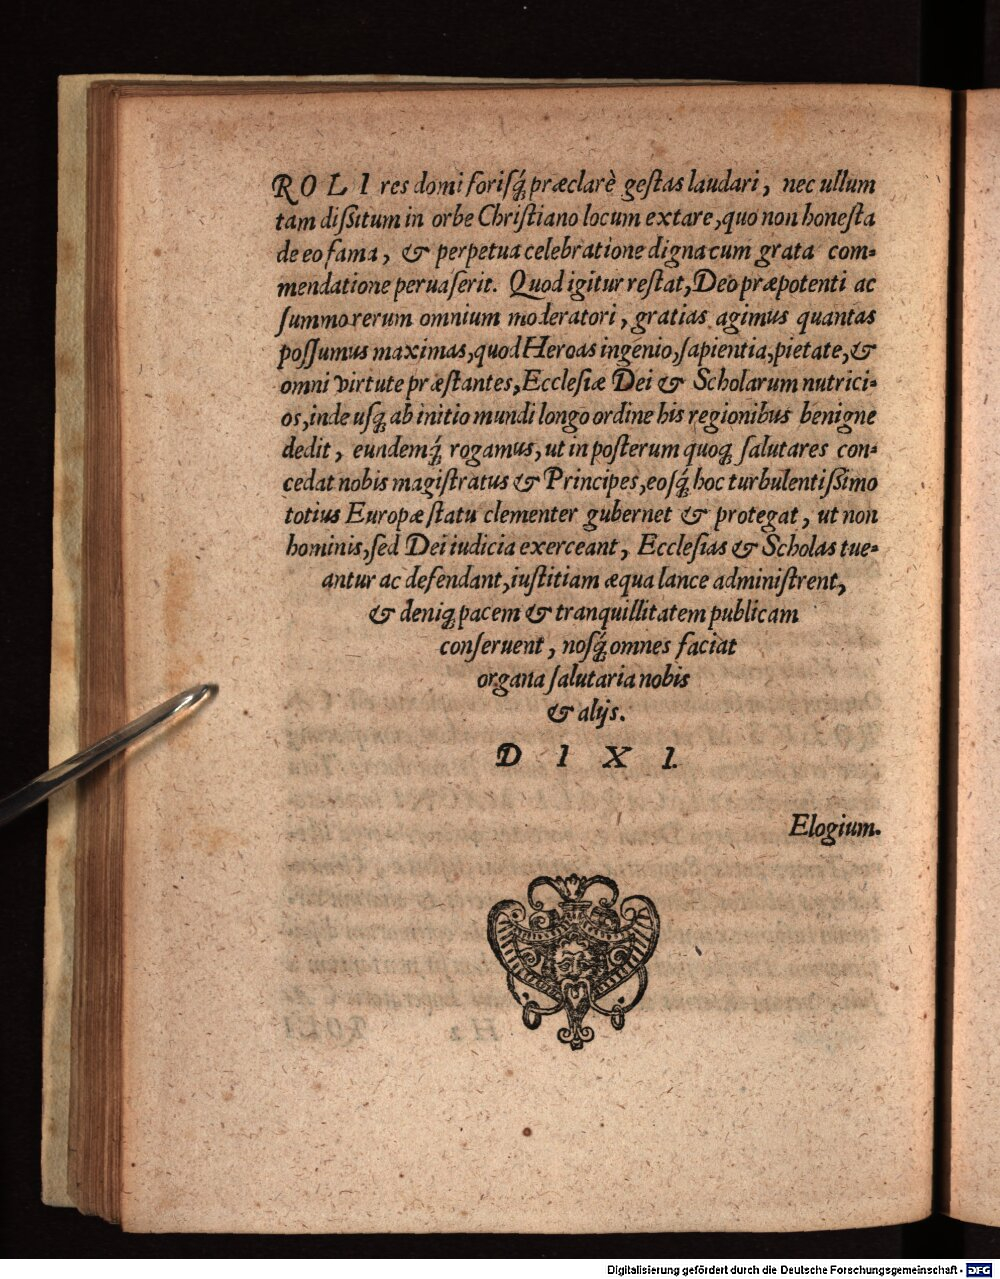 R O L I res domi forisq́ꝫ præclarè gestas laudari, nec ullum
tam dissitum in orbe Christiano locum extare, quo non honesta
de eo fama, & perpetua celebratione digna cum grata com-
mendatione peruaserit. Quod igitur restat, Deo præpotenti ac
summo rerum omnium moderatori, gratias agimus quantas
possumus maximas, quod Heroas ingenio, sapientia, pietate, &
omni virtute præstantes, Ecclesiæ Dei & Scholarum nutrici-
os, inde usqꝫ ab initio mundi longo ordine his regionibus benigne
dedit, eundemq́ꝫ rogamus, ut in posterum quoqꝫ salutares con-
cedat nobis magistratus & Principes, eosq́ꝫ hoc turbulentissimo
totius Europæ statu clementer gubernet & protegat, ut non
hominis, sed Dei iudicia exerceant, Ecclesias & Scholas tue-
antur ac defendant, iustitiam æqua lance administrent,
& deniqꝫ pacem & tranquillitatem publicam
conseruent, nosq́ꝫ omnes faciat
organa salutaria nobis
& alijs.
D I X I.
Elogium.
Digitalisierung gefördert durch die Deutsche Forschungsgemeinschaft - DFG